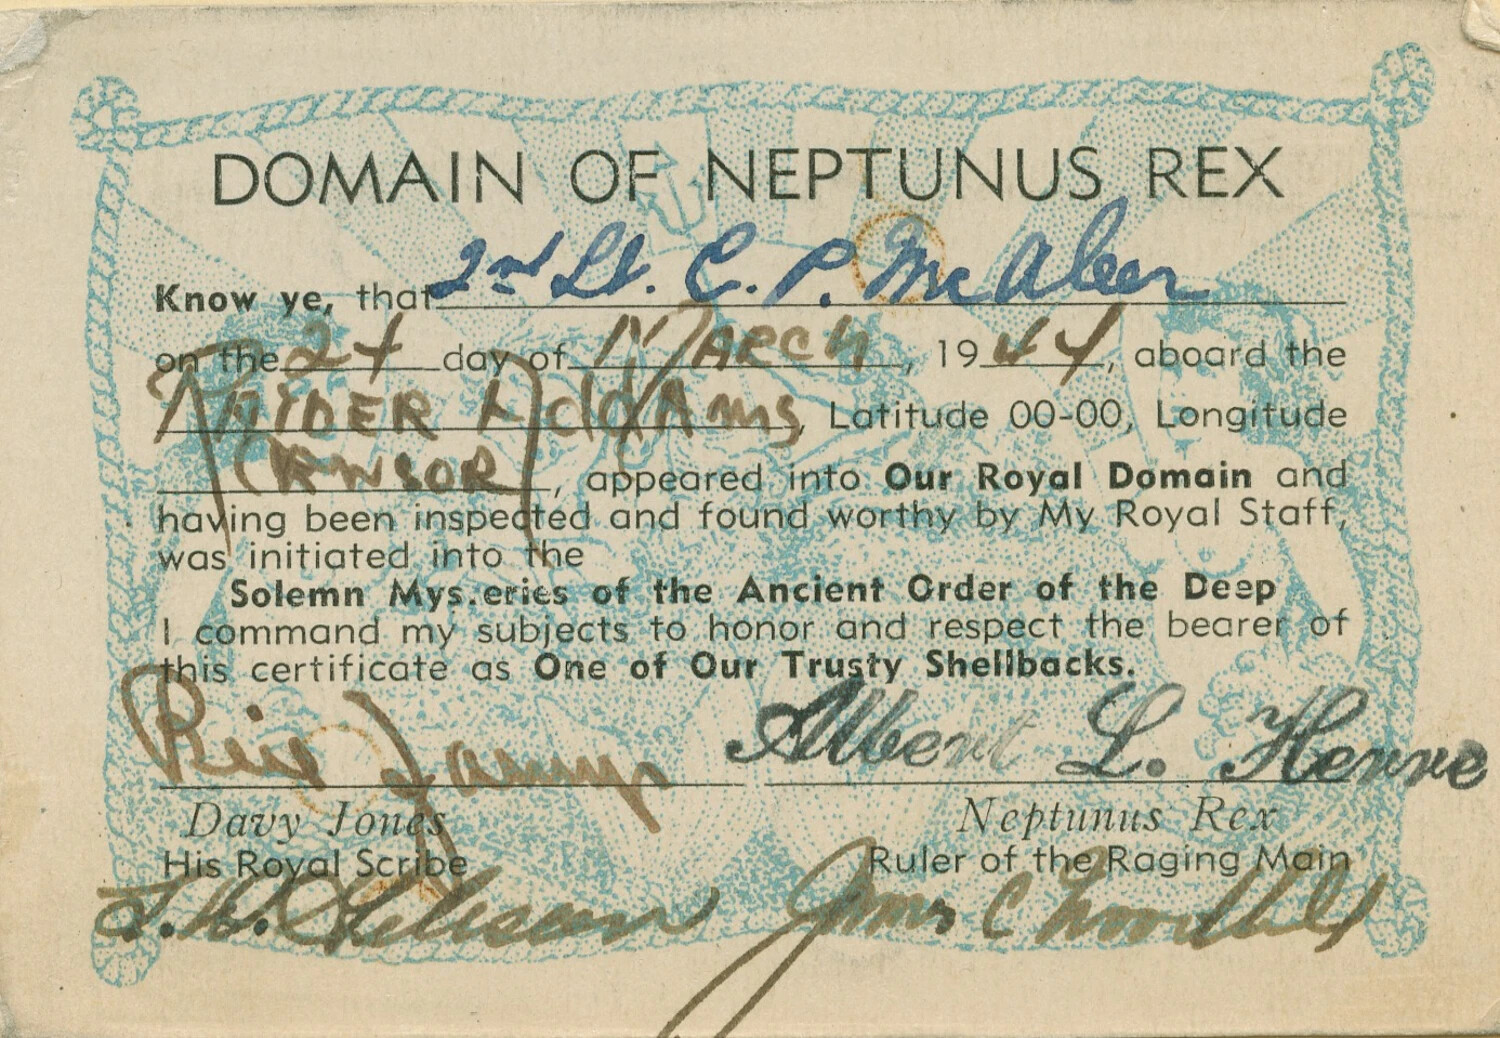 DOMAIN OF NEPTUNUS REX
Know ye, that 2nd Lt. C. P. McAleer
on the 24 day of March, 1944, aboard the
Addams, Latitude 00-00, Longitude
(CENSOR), appeared into Our Royal Domain and
having been inspected and found worthy by My Royal Staff,
was initiated into the
Solemn Mys.eries of the Ancient Order of the Deep
I command my subjects to honor and respect the bearer of
this certificate as One of Our Trusty Shellbacks.
Albert L.
Davy Jones Neptunus Rex
His Royal Scribe Ruler of the Raging Main